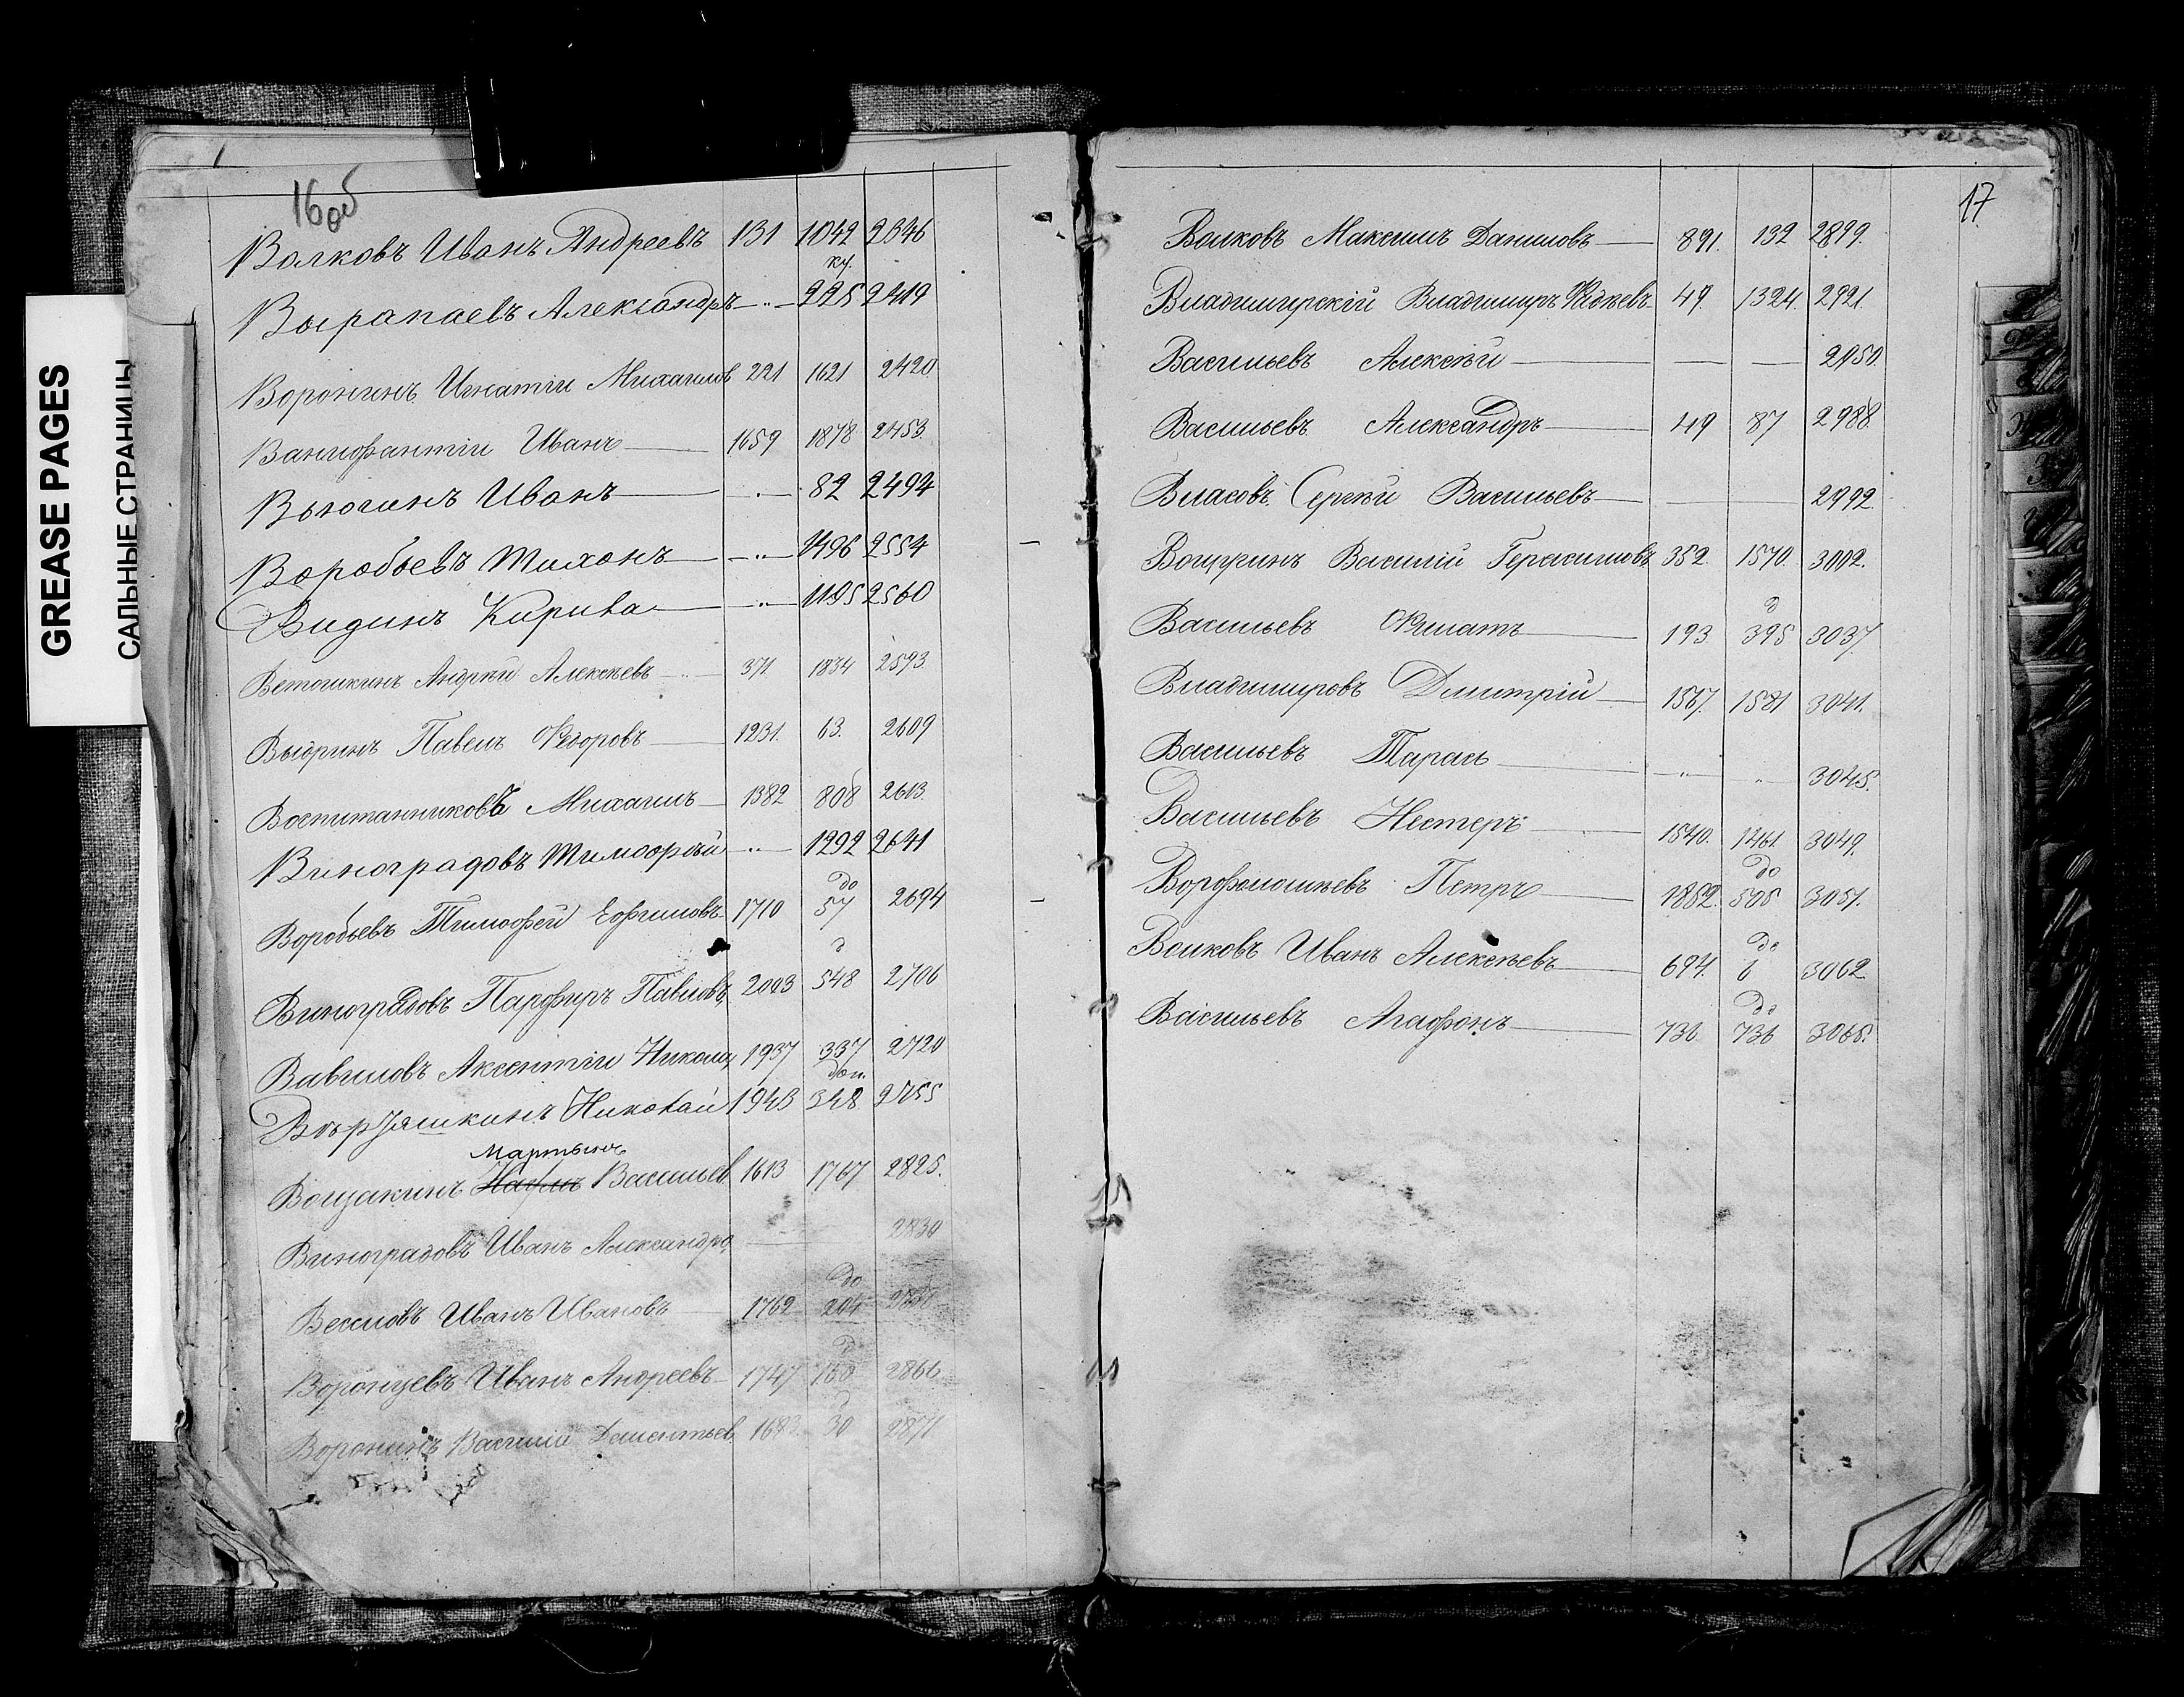 GREASE PAGES
САЛЬНЫЕ СТРАНИЦЫ
16об
Волковъ Иванъ Андреевъ 131 1042 2346
ку.
Выропаевъ Александръ — 225 2419
Воронинъ Игнатіи Михаилов 221 1621 2420
Иванъ — 1659 1878 2453
Вьюгинъ Иванъ — 82 2494
Воробьевъ Тихонъ — 1496 2554
Видинъ Кирила — 1195 2560
Ветошкинъ Андрѣй Алексѣевъ — 371 1834 2593
Выдринъ Павелъ Ѳедоровъ — 1231. 63. 2609
Воспитанниковъ Михаилъ — 1382 808 2613.
Виноградовъ Тимофѣй — 1292 2641
до
Воробьевъ Тимофей Ефимовъ 1710 57 2694
д
Виноградовъ Парфиръ Павловъ 2003 548 2706
Вавиловъ Аксентіи Никола 1937 337 2720
доп.
Николай 1943 348 2755
Мартынъ
Вощакинъ Васильев 1613 1767 2825.
Виноградовъ Иванъ Александро — 2830
до
Веселовъ Иванъ Ивановъ — 1762 204
д
Воронцевъ Иванъ Андреевъ 1747 160 2866
д
Воронинъ Василій Дементьев 1683 30 2871
17
Волковъ Максимъ Даниловъ — 891. 132 2899.
Владимирскій Владимиръ 49. 1324. 2921.
Васильевъ Алексѣй — — — 2950.
Васильевъ Александръ — 49 87 2988
Власовъ Сергѣй Васильевъ — — — 2992.
Вощринъ Василій Герасимовъ 352. 1570. 3002.
д
Васильевъ Филатъ — 193 395 3037
Владимировъ Дмитрій — 1567. 1581 3041.
Васильевъ Тарасъ — 3045.
Васильевъ Нестеръ — 1540. 1461. 3049.
до
Ворфоломѣевъ Петръ — 1882. 505 3051.
до
Волковъ Иванъ Алексѣевъ — 694. 6 3062
до
Васильевъ Агафонъ — 736 736 3068.